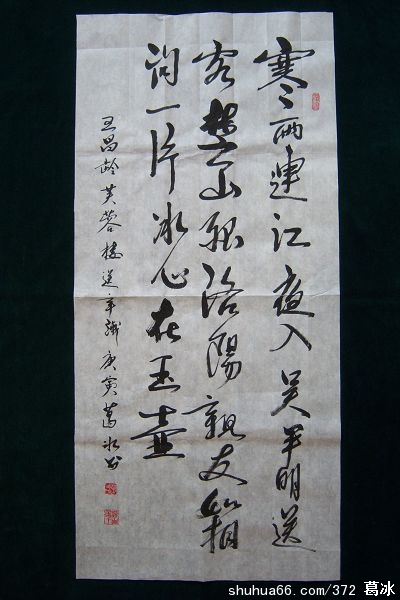 寒雨連江夜入吴平明送
客楚山孤洛陽親友如相
问一片冰心在玉壶
王昌龄芙蓉楼送辛渐庚寅葛冰书
shuhua66.com/372 葛冰